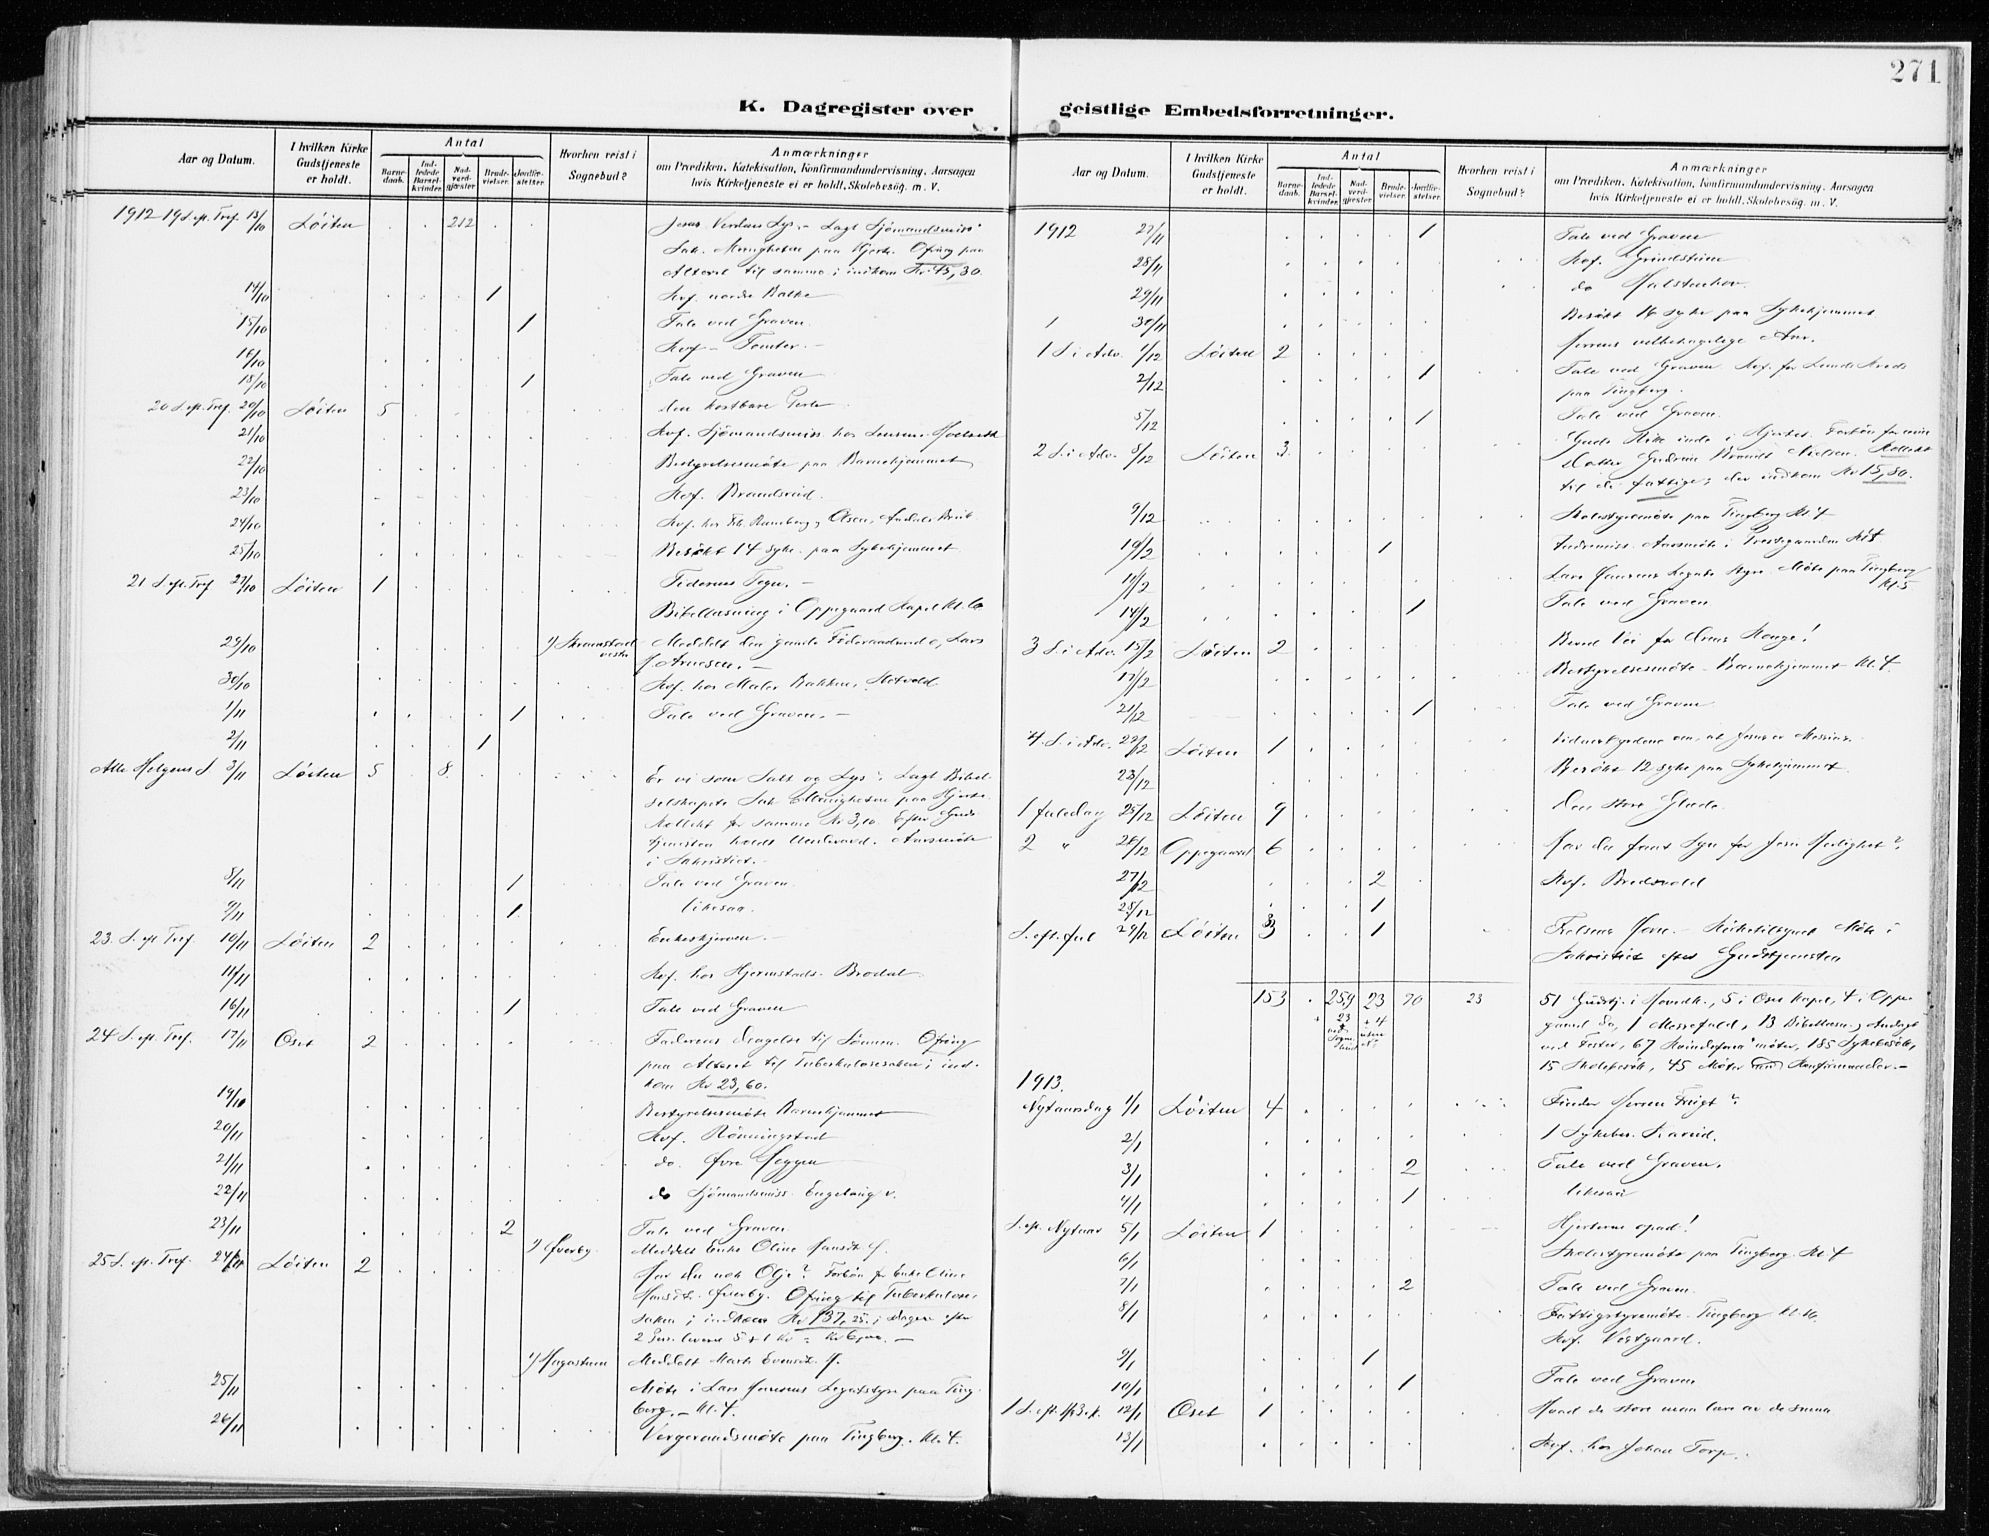 271
K. Dagregister over
geistlige Embedsforretninger.
Aar og Datum.
I hvilken Kirke Gudstjeneste er holdt.
Antal
Barne-daab.
Ind-ledede Barsel-kvinder.
Nad-verd-gjæster.
Brude-vielser.
Jordfæ-stelser.
Hvorhen reist i Sognebud?
Anmærkninger
om Prædiken, Katekisation, Konfirmandundervisning, Aarsagen
hvis Kirketjeneste ei er holdt, Skolebesøg, m. V.
1912 19 S. eft. Tref. 13/10 Löiten 212 Jesus Verdens Lys. - Lagt Sjömandsmiss.
Sak. Menigheten paa Hjerte. Ofring paa
Alteret til samme; indkom Kr. 45,30.
14/10 1 Kvf. nordre Balke
15/10 1 Tale ved Graven.
16/10 Kvf - Tomter. -
18/10 1 Tale ved Graven
20 S. eft. Tref. 20/10 Löiten 5 den kostbare Perle
21/10 Kvf. Sjömandsmiss. hos Jensen,
22/10 Bestyrelsesmöte paa Barnehjemmet
23/10 Kvf. Brandsrud.
24/10 Kvf. hos
25/10 Besökt 14 syke paa Sykehjemmet.
21 S. eft. Tref 27/10 Löiten 1 Tidernes Tegn. -
Bibellæsning i Oppegaard Kapel Kl. 6
29/10 1) Skramstad vestre Meddelt den gamle Föderaadsmand, Lars
Arnesen. -
30/10 Kvf. hos Maler Bakken,
1/11 1 Tale ved Graven. -
2/11 1
Alle Helgens S 3/11 Löiten 5 8 Er vi som Salt og Lys? Lagt Bibel-
selskapets Sak Menigheten paa Hjerte.
Kollekt for samme Kr 3,10. Efter Guds-
tjenesten holdt Aarsmöte
i Sakristiet. -
8/11 1 Tale ved Graven.
9/11 1 likesaa.
23. S. eft Tref. 10/11 Löiten 2 Enkeskjerven. -
11/11 Kvf. hos Hjermstad - Brodal.
16/11 1 Tale ved Graven
24 S. eft. Tref. 17/11 Oset 2 Faderens dragelse til Sönnen. Ofring
paa Alteret til Tuberkulosesaken; ind-
kom Kr 23,60.
19/10 Bestyrelsesmöte Barnehjemmet
20/11 Kvf. Rönningstad
21/11 do. Övre
22/11 do Sjömandsmiss. Engelaug v.
23/11 2 Tale ved Graven.
1) Överby. Meddelt Enke Oline Hansd.
25 S. eft. Tref. 24/11 Löiten 2 Har du nok Olje? Forbön for Enke Oline
Hansd. Överby. Ofring til Tuberkulose-
saken; indkom Kr 137,25; dagen efter
2 Pers. leveret 5 + 1 Kr =
1) Hagastuen Meddelt Marte Evensd.
25/11 Möte i Lars Jensens Legatstyre paa Ting-
berg. - Kl. 4.
26/11 Vergeraadsmöte paa Tingberg. Kl. 4.
Aar og Datum.
I hvilken Kirke Gudstjeneste er holdt.
Antal
Barne-daab.
Ind-ledede Barsel-kvinder.
Nad-verd-gjæster.
Brude-vielser.
Jordfæ-stelser.
Hvorhen reist i Sognebud?
Anmærkninger
om Prædiken, Katekisation, Konfirmandundervisning, Aarsagen
hvis Kirketjeneste ei er holdt, Skolebesøg, m. V.
1912 27/11 1 Tale ved Graven
28/11 Kvf. Grindstuen
29/11 do
30/11 Besökt 16 syke paa Sykehjemmet
1 S. i Adv. 1/12 Löiten 2 Herrens velbehagelige Aar.
2/12 1 Tale ved Graven Kvf. for Lunds Kreds
paa Tingberg.
5/12 1 Tale ved Graven.
2 S. i Adv. 8/12 Löiten 3. Guds Rike inde i Hjertet. Forbön for min
Datter Gudrun Brandt Nielsen. Kollekt
til de fattige; der indkom Kr 15,80.
9/12 Skolestyremöte paa Tingberg Kl. 4
10/12 1 Indremiss. Aarsmöte i Prestegaarden Kl 5
11/12 Lars Jensens Legats Styre. Möte paa Tingberg
Kl. 5
14/12 1 Tale ved Graven
3 S. i Adv. 15/12 Löiten 2 Bered Vei for deres Konge!
17/12 Bestyrelsesmöte - Barnehjemmet Kl. 4.
21/12 1 Tale ved Graven
4 S. i Adv. 22/12 Löiten 1 Vidnesbyrdene om, at Jesus er Messias.
23/12 Besökt 12 syke paa Sykehjemmet.
1 Juledag 25/12 Löiten 9 Den store Glæde.
2 " 26/12 Oppegaard 6 Har du faat Syn for Jesu Herlighet?
27/12 2 Kvf. Bredsvold
28/12 1
S. eft. Jul 29/12 Löiten 3 1 Frelsens Horn. - Kirketilsynet Möte i
Sakristiet efter Gudstjenesten
153 259 23 70 23 51 Gudstj. i Hovedk., 5 i Oset Kapel, 4 i Oppe-
+ 23 ved Sogne-bud + 4 gaard do, 1 Messefald, 13 Bibellæsn. og Andagt
ved Fester, 67 Kvindeforen.möter, 185 Sykebesök,
15 Skolebesök, 45 Möter med Konfirmander. -
1913.
Nytaarsdag 1/1 Löiten 4 Finder Herren Frugt?
2/1 1 Sykebes.
3/1 2 Tale ved Graven.
4/1 1 likesaa
S. eft. Nytaar 5/1 Löiten 1 Hjerterne opad!
6/1 Skolestyremöte paa Tingberg. Kl. 4
7/1 2 Tale ved Graven.
8/1 Fattigstyremöte. Tingberg Kl 10.
Kvf. Vestgaard.
9/1 1
10/1 1 Tale ved Graven
1 S. eft. H3K. 12/1 Oset 1 Hvad de store maa lære av de smaa
13/1 Kvf. hos Johan Torp.